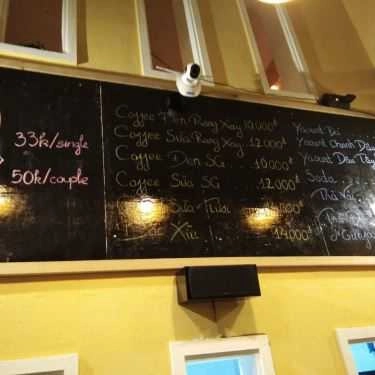 33k/single
50k/couple
Coffee Đen Rang Xay 10.000đ
Coffee Sữa Rang Xay 12.000đ
Coffee Đen SG 10.000đ
Coffee Sữa SG 12.000đ
Sữa Tươi
Bạc Xỉu 14.000đ
Yaourt Đá
Yaourt Chanh Dây
Yaourt Dâu Tây
Soda